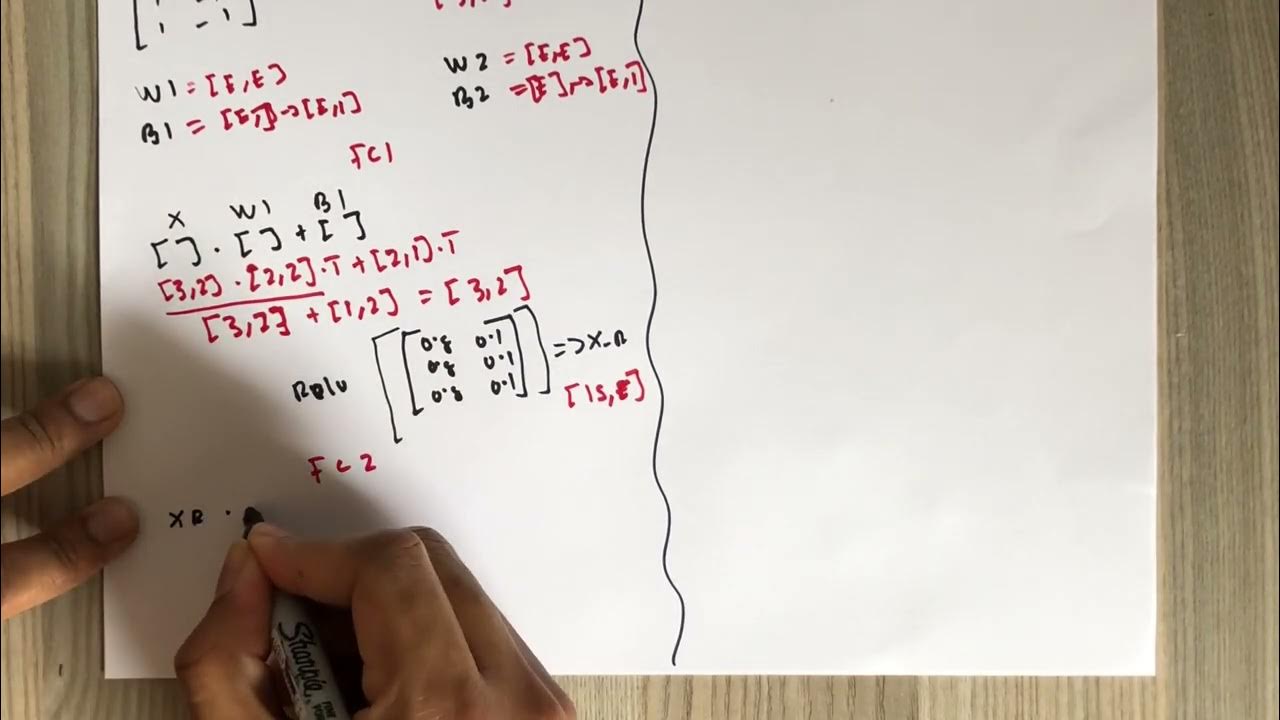 1 -1
W1 = [E,E]
B1 = [E,1] → [E,1]
W2 = [E,E]
B2 = [E] → [E,1]
FC1
X W1 B1
[ ] . [ ] + [ ]
[3,2] . [2,2].T + [2,1].T
[3,2] + [1,2] = [3,2]
Relu
0.8 0.1
0.8 0.1 => X_R
0.8 0.1
[1S,E]
FC2
XR .
Sharpie